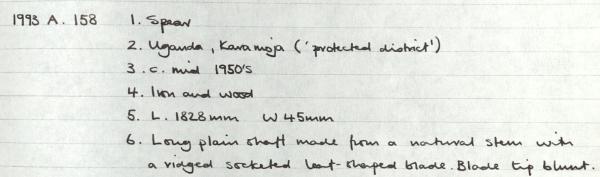 1993 A. 158 1. Spear
2. Uganda, Karamoja ('protected district')
3. c. mid 1950's
4. Iron and wood
5. L. 1828mm W 45mm
6. Long plain shaft made from a natural stem with
a ridged socketed leaf-shaped blade. Blade tip blunt.